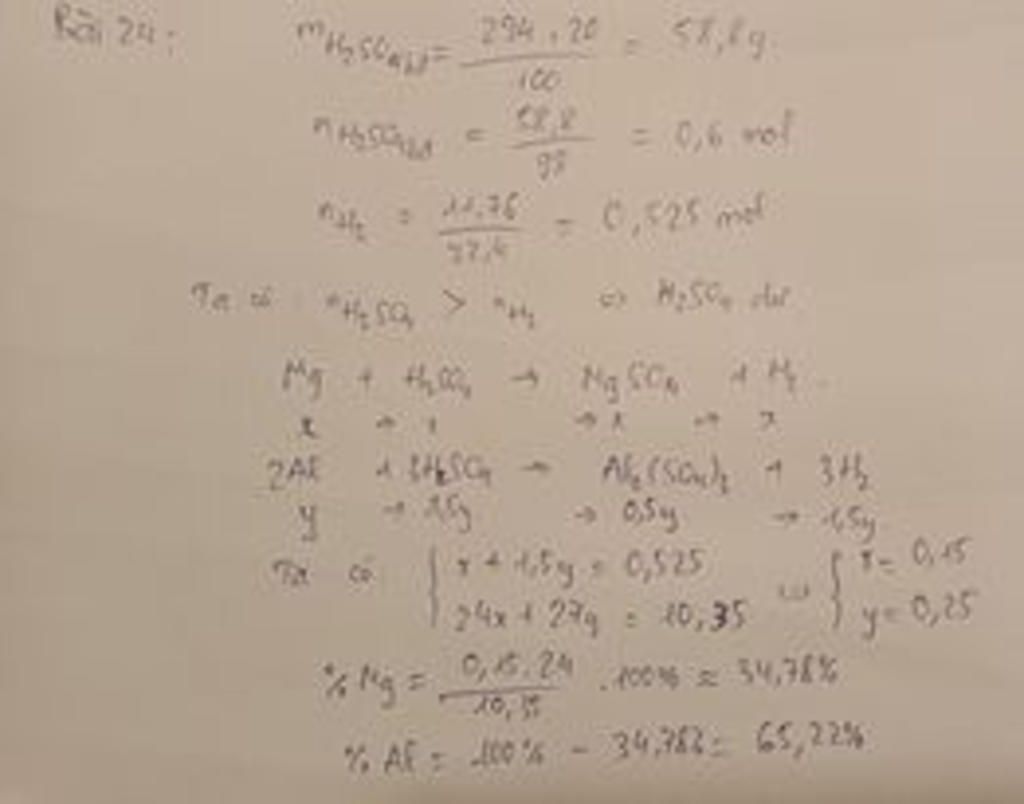 Bài 24:
mH₂SO₄bđ = 294 . 20 / 100 = 58,8g
nH₂SO₄bđ = 58,8 / 98 = 0,6 mol
nH₂ = 11,76 / 22,4 = 0,525 mol
Ta có: nH₂SO₄ > nH₂ ⇔ H₂SO₄ dư
Mg + H₂SO₄ → MgSO₄ + H₂
x → x → x → x
2Al + 3H₂SO₄ → Al₂(SO₄)₃ + 3H₂
y → 1,5y → 0,5y → 1,5y
Ta có { x + 1,5y = 0,525 ⇔ { x = 0,15
24x + 27y = 10,35 y = 0,25
% Mg = 0,15.24 / 10,35 . 100% ≈ 34,78%
% Al = 100% - 34,78% = 65,22%